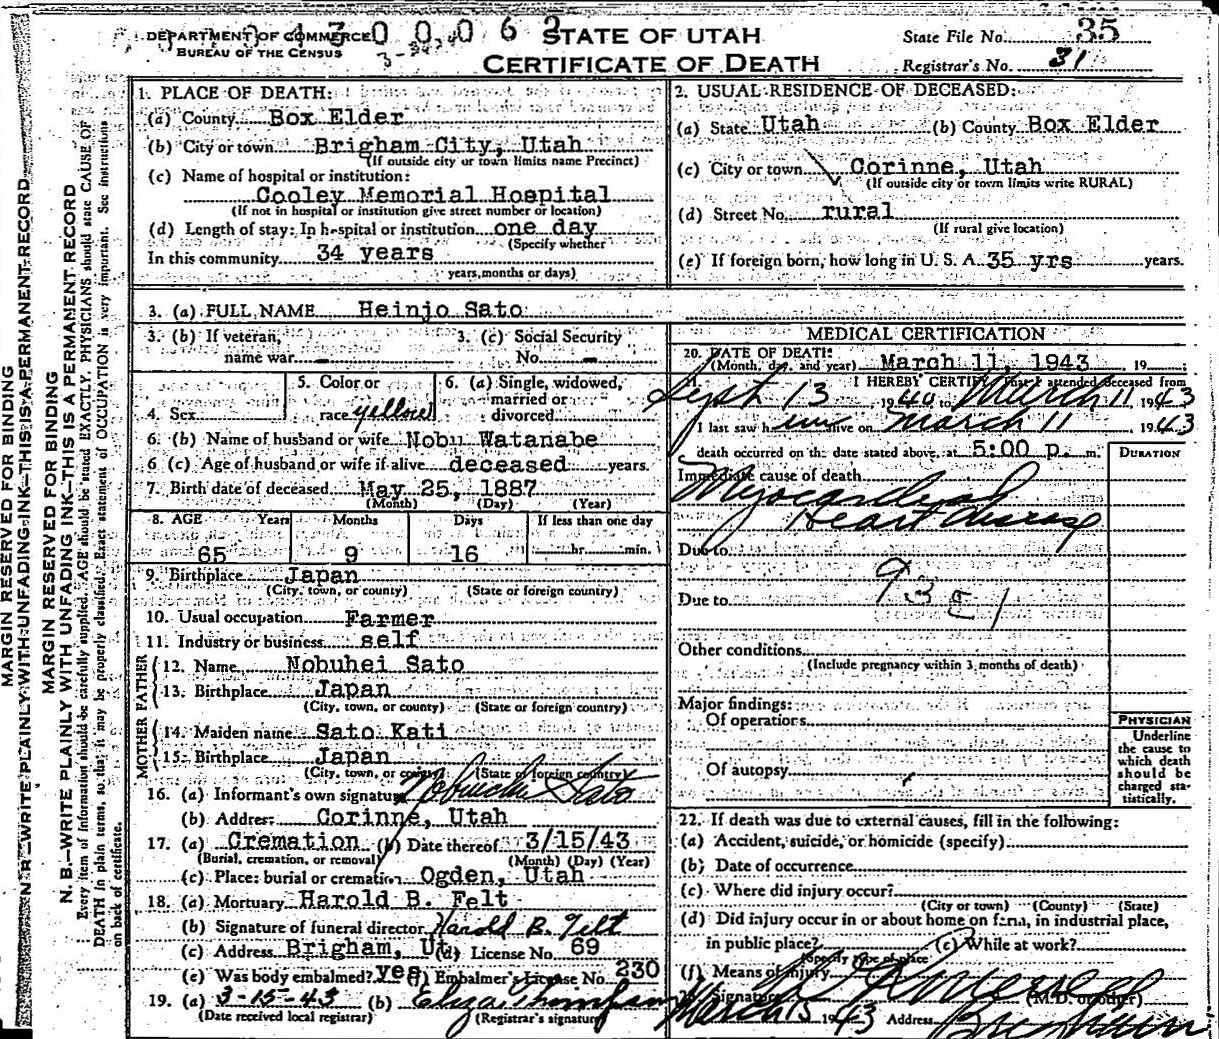 DEPARTMENT OF COMMERCE
BUREAU OF THE CENSUS
STATE OF UTAH
CERTIFICATE OF DEATH
State File No. 35
Registrar's No. 31
MARGIN RESERVED FOR BINDING
N. B.—WRITE PLAINLY WITH UNFADING INK—THIS IS A PERMANENT RECORD
MARGIN RESERVED FOR BINDING
N. B.—WRITE PLAINLY WITH UNFADING INK—THIS IS A PERMANENT RECORD
Every item of information should be carefully supplied. AGE should be stated EXACTLY. PHYSICIANS should state CAUSE OF
DEATH in plain terms, so that it may be properly classified. Exact statement of OCCUPATION is very important. See instructions
on back of certificate.
1. PLACE OF DEATH:
(a) County Box Elder
(b) City or town Brigham City, Utah
(If outside city or town limits name Precinct)
(c) Name of hospital or institution:
Cooley Memorial Hospital
(If not in hospital or institution give street number or location)
(d) Length of stay: In hospital or institution one day
(Specify whether
In this community 34 years
years, months or days)
2. USUAL RESIDENCE OF DECEASED:
(a) State Utah (b) County Box Elder
(c) City or town Corinne, Utah
(If outside city or town limits write RURAL)
(d) Street No. rural
(If rural give location)
(e) If foreign born, how long in U. S. A. 35 yrs years.
3. (a) FULL NAME Heinjo Sato
3. (b) If veteran,
name war —
3. (c) Social Security
No. —
4. Sex
5. Color or
race yellow
6. (a) Single, widowed,
married or
divorced
6. (b) Name of husband or wife Nobu Watanabe
6 (c) Age of husband or wife if alive deceased years.
7. Birth date of deceased May 25, 1887
(Month) (Day) (Year)
8. AGE Years Months Days If less than one day
65 9 16 hr. min.
9. Birthplace Japan
(City, town, or county) (State or foreign country)
10. Usual occupation Farmer
11. Industry or business self
FATHER
12. Name Nobuhei Sato
13. Birthplace Japan
(City, town, or county) (State or foreign country)
MOTHER
14. Maiden name Sato Kati
15. Birthplace Japan
(City, town, or county) (State or foreign country)
16. (a) Informant's own signature Nobuichi Sato
(b) Address Corinne, Utah
17. (a) Cremation (b) Date thereof 3/15/43
(Burial, cremation, or removal) (Month) (Day) (Year)
(c) Place: burial or cremation Ogden, Utah
18. (a) Mortuary Harold B. Felt
(b) Signature of funeral director Harold B. Felt
(c) Address Brigham, Ut (d) License No. 69
(e) Was body embalmed? yes (f) Embalmer's License No. 230
19. (a) 3-15-43 (b) Eliza Thompson
(Date received local registrar) (Registrar's signature)
MEDICAL CERTIFICATION
20. DATE OF DEATH:
(Month, day, and year) March 11, 1943, 19
21. I HEREBY CERTIFY, That I attended deceased from
Sept 13, 1940 to March 11, 1943
I last saw him alive on March 11 1943
death occurred on the date stated above, at 5:00 p. m.
DURATION
Immediate cause of death
Myocardial
Heart disease
Due to
93 E 1
Due to
Other conditions
(Include pregnancy within 3 months of death)
Major findings:
Of operations
Of autopsy
PHYSICIAN
Underline
the cause to
which death
should be
charged sta-
tistically.
22. If death was due to external causes, fill in the following:
(a) Accident, suicide, or homicide (specify)
(b) Date of occurrence
(c) Where did injury occur?
(City or town) (County) (State)
(d) Did injury occur in or about home on farm, in industrial place,
in public place? (e) While at work?
(Specify type of place)
(f) Means of injury
23. Signature (M.D. or other)
March 15 1943 Address Brigham